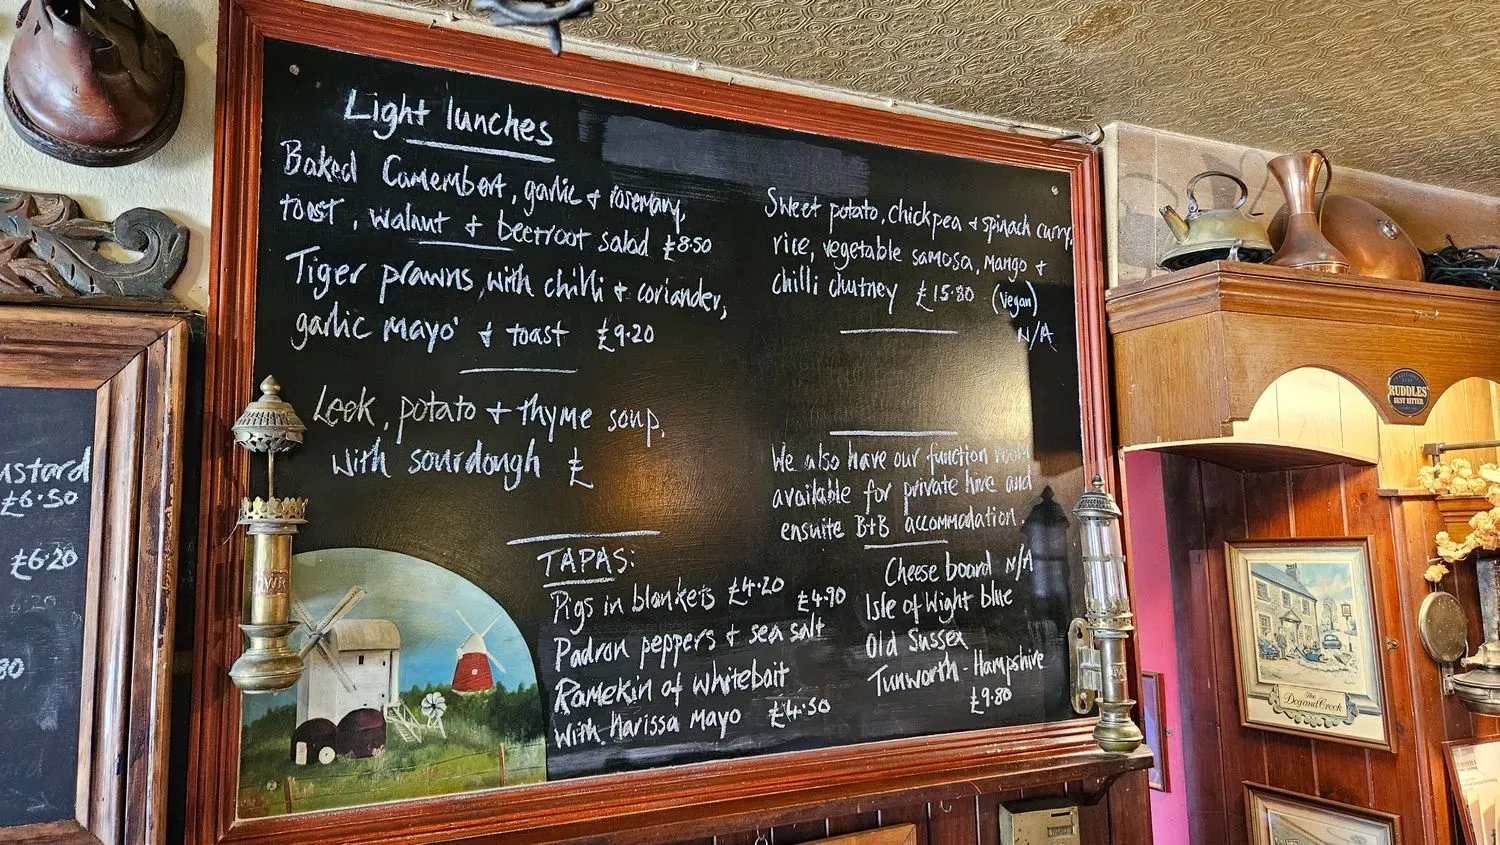 Light lunches
Baked Camembert, garlic + rosemary,
toast, walnut + beetroot salad £8.50
Tiger prawns, with chilli + coriander,
garlic mayo' + toast £9.20
Leek, potato + thyme soup,
with sourdough £
TAPAS:
Pigs in blankets £4.20
£4.90
Padron peppers + sea salt
Ramekin of whitebait
with Harissa mayo £4.50
Sweet potato, chickpea + spinach curry,
rice, vegetable samosa, mango +
chilli chutney £15.80 (vegan)
N/A
We also have our function room
available for private hire and
ensuite B+B accommodation.
Cheese board N/A
Isle of Wight blue
Old Sussex
Tunworth - Hampshire
£9.80
ustard
£6.50
£6.20
6.20
80
GWR
RUDDLES'
BEST BITTER
The
Dog and Crook